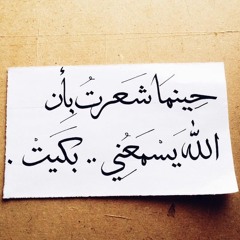 حِينمَا شَعَرتُ بِأن
اللّٰه يَسْمَعُنِي .. بَكَيتْ .